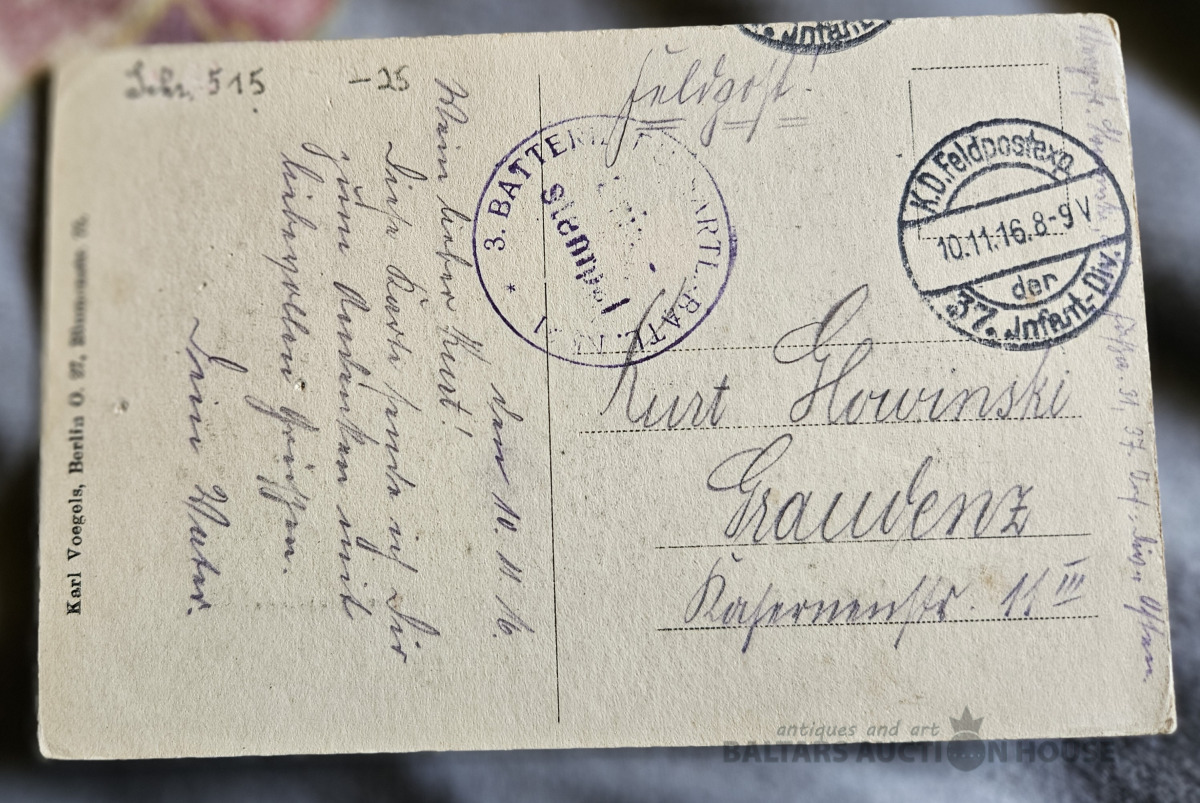 Schr. 515
-25
den 10.11.16.
Mein lieber Kurt!
Diese Karte sende ich Dir
zum Andenken mit
liebevollen Grüßen.
Dein Vater.
Karl Voegels, Berlin O. 27, Blumenstr. 75.
Feldpost!
Infant.
3. BATTERIE ARTL. BATL.
K.D. Feldpostexp.
10.11.16. 8-9 V
der
37. Infant.-Div.
Kurt Glowinski
Graudenz
Kasernenstr. 11 III
37. Inf. Div. Osten.
antiques and art
BALTARS AUCTION HOUSE